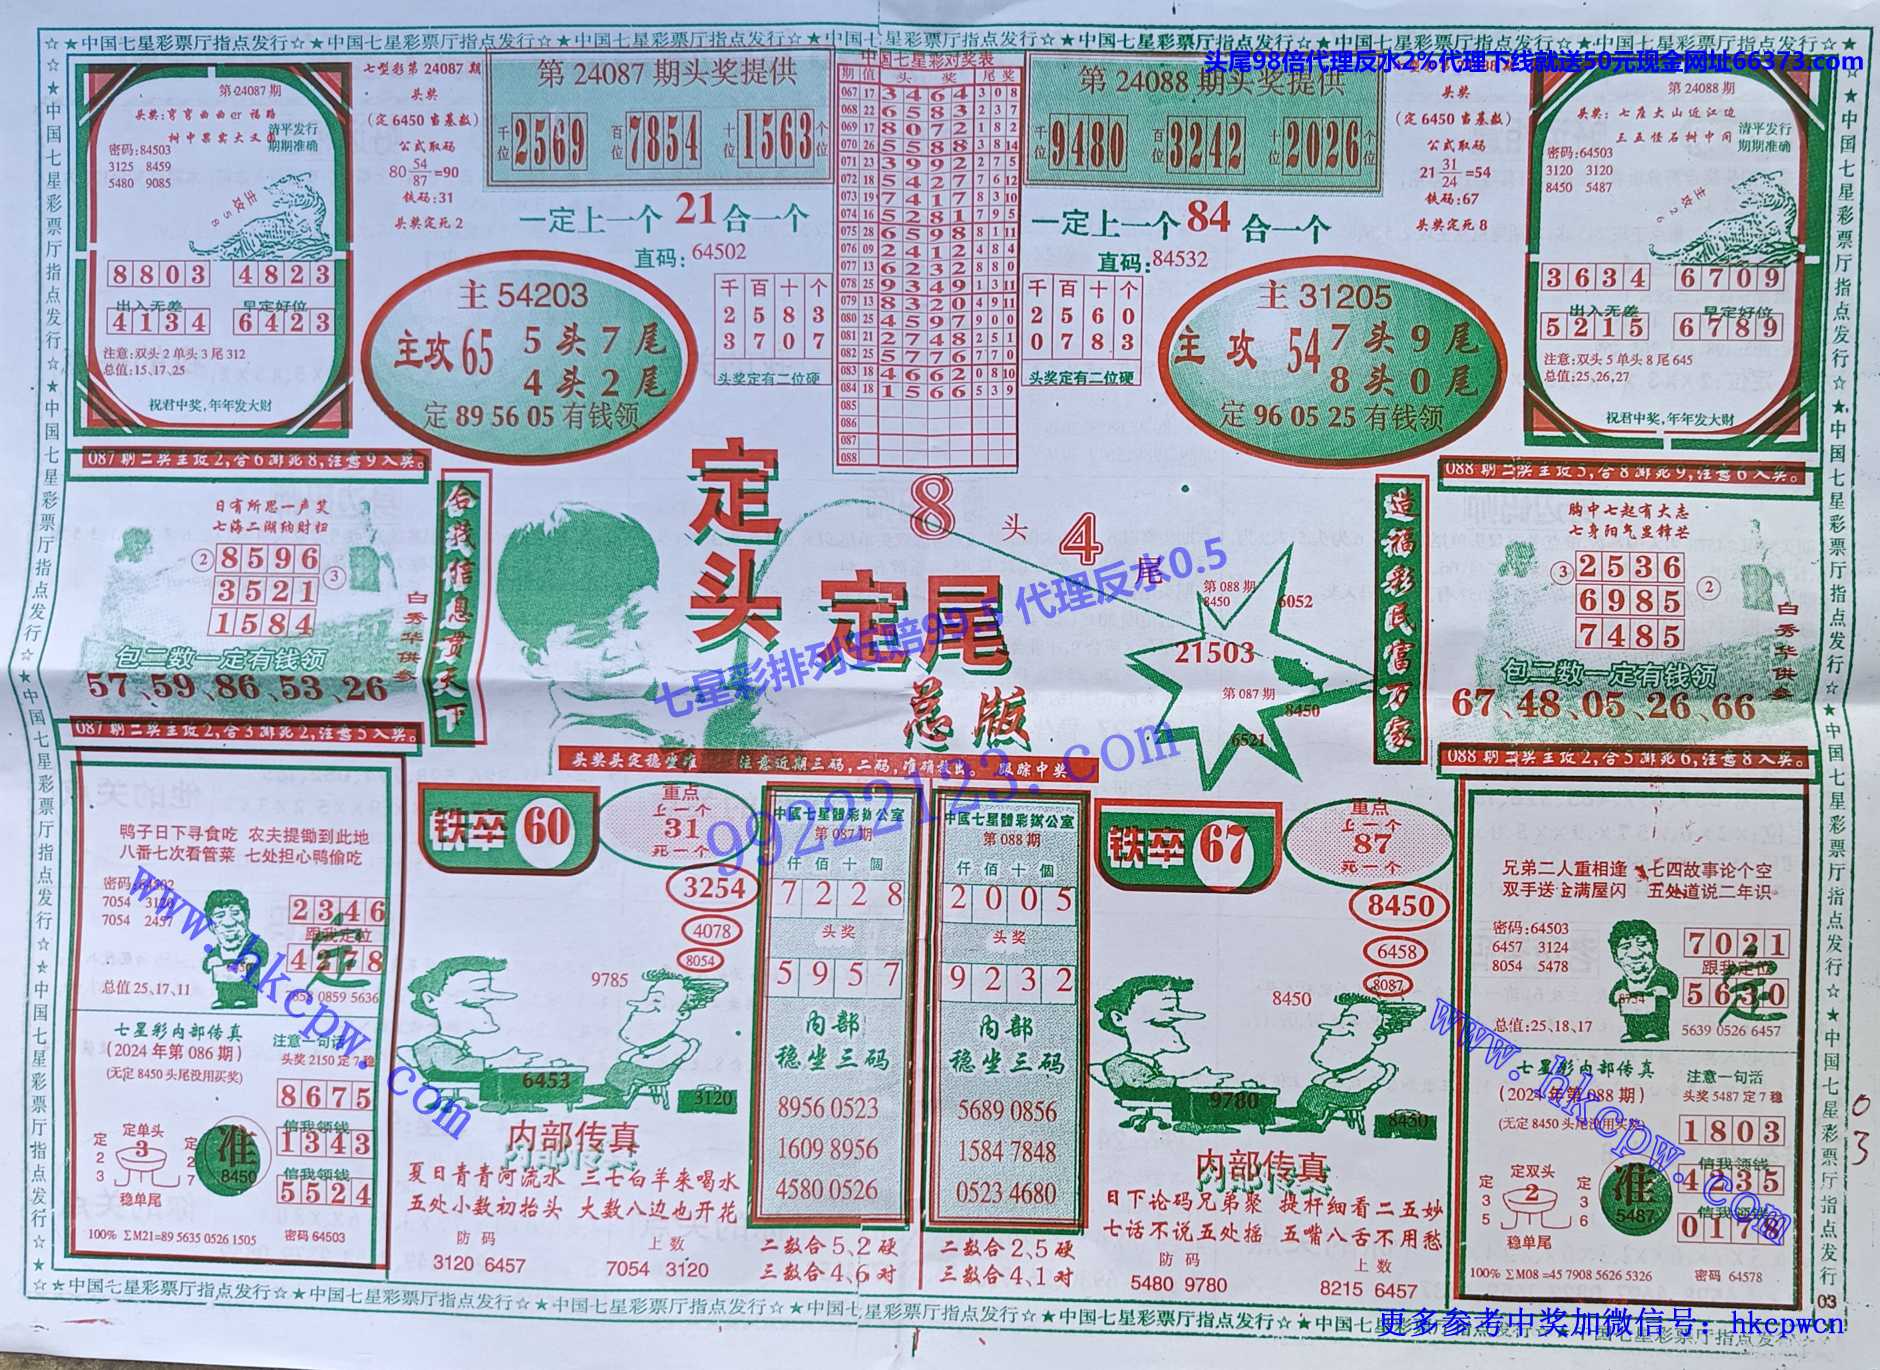 ☆★中国七星彩票厅指点发行☆★中国七星彩票厅指点发行☆★中国七星彩票厅指点发行☆★中国七星彩票厅指点发行☆★中国七星彩票厅指点发行☆★中国七星彩票厅指点发行☆★中国七星彩票厅指点发行☆★
头尾98倍代理反水2%代理下线就送50元现金网址66373.com
第24087期
头奖:弯弯曲曲er福路
树中果实大又
清平发行
期期准确
密码:84503
3125 8459
5480 9085
主攻58
8803 4823
出入无差 早定好位
4134 6423
注意:双头2单头3尾312
总值:15、17、25
祝君中奖,年年发大财
七型彩第24087期
头奖
(定6450当基数)
公式取码
80 54/87 =90
铁码:31
头奖定死2
第24087期头奖提供
千位 2569 百位 7854 十位 1563 个位
一定上一个21合一个
直码:64502
主54203
主攻65 5头7尾
4头2尾
定 89 56 05 有钱领
千百十个
2583
3707
头奖定有二位硬
中国七星彩对奖表
期 值 头奖 尾奖
067 17 3464 308
068 22 6583 237
069 17 8072 182
070 26 5588 3814
071 23 3992 275
072 18 5427 7612
073 19 7417 8310
074 16 5281 795
075 28 6598 8111
076 09 2412 484
077 13 6232 880
078 25 9349 1311
079 13 8320 4911
080 25 4597 900
081 21 2748 251
082 25 5776 770
083 18 4662 0810
084 18 1566 539
085
086
087
088
第24088期头奖提供
千位 9480 百位 3242 十位 2026 个位
一定上一个84合一个
直码:84532
千百十个
2560
0783
头奖定有二位硬
主31205
主攻54 7头9尾
8头0尾
定 96 05 25 有钱领
头奖
(定6450当基数)
公式取码
21 31/24 =54
铁码:67
头奖定死8
第24088期
头奖:七座大山近江边
三五怪石树中间
清平发行
期期准确
密码:64503
3120 3120
8450 5487
主攻26
3634 6709
出入无差 早定好位
5215 6789
注意:双头5单头8尾645
总值:25,26,27
祝君中奖,年年发大财
087期二奖主攻2,合6溯死8,注意9入奖。
日有所思一声笑
七海二湖纳财归
② 8596
3521 ③
1584
白秀华供参
包二数一定有钱领
57、59、86、53、26
087期二奖主攻2,合3溯死2,注意5入奖。
合我信息贯天下
定头定尾
8头4尾
总版
七星彩排列五赔99.5 代理反水0.5
99222123.com
第088期
8450
6052
21503
第087期
8450
6521
造福彩民富万家
088期二奖主攻5,合8溯死9,注意6入奖。
胸中七起有大志
七身阳气显锋芒
③ 2536
6985 ②
7485
白秀华供参
包二数一定有钱领
67、48、05、26、66
088期二奖主攻2,合5溯死6,注意8入奖。
头奖头定稳坐准 注意近期三码,二码,准确放出。 跟踪中奖
鸭子日下寻食吃 农夫提锄到此地
八番七次看管菜 七处担心鸭偷吃
密码:64302
7054 3120
7054 2457
总值25、17、11
2346
跟我定位
4278
定
7858 0859 5636
七星彩内部传真
(2024年第086期)
(无定8450头尾没用买奖)
注意一句话
头奖2150定7稳
8675
信我领钱
1343
信我领钱
5524
定单头
3
定23
定27
稳单尾
准
8450
100% ΣM21=89 5635 0526 1505 密码 64503
铁卒60
重点
上一个
31
死一个
3254
4078
8054
9785
6453
3120
内部传真
夏日青青河流水 三七白羊来喝水
五处小数初抬头 大数八边也开花
防码 上数
3120 6457 7054 3120
中國七星體彩辦公室
第087期
仟佰十個
7228
头奖
5957
内部
稳坐三码
8956 0523
1609 8956
4580 0526
二数合5、2硬
三数合4、6对
中國七星體彩辦公室
第088期
仟佰十個
2005
头奖
9232
内部
稳坐三码
5689 0856
1584 7848
0523 4680
二数合2、5硬
三数合4、1对
铁卒67
重点
上一个
87
死一个
8450
6458
8087
8450
9780
8450
内部传真
日下论码兄弟聚 提杆细看二五妙
七话不说五处摇 五嘴八舌不用愁
防码 上数
5480 9780 8215 6457
兄弟二人重相逢 七四故事论个空
双手送金满屋闪 五处道说二年识
密码:64503
6457 3124
8054 5478
总值:25、18、17
8754
7021
跟我定位
5630
定
5639 0526 6457
七星彩内部传真
(2024年第088期)
(无定8450头尾没用买奖)
注意一句活
头奖5487定7稳
1803
信我领钱
4235
信我领钱
0178
定双头
2
定35
定36
稳单尾
准
5487
100% ΣM08=45 7908 5626 5326 密码 64578
www.hkcpw.com
www.hkcpw.com
03
03
更多参考中奖加微信号:hkcpwcn
☆★中国七星彩票厅指点发行☆★中国七星彩票厅指点发行☆★中国七星彩票厅指点发行☆★中国七星彩票厅指点发行☆★中国七星彩票厅指点发行☆★